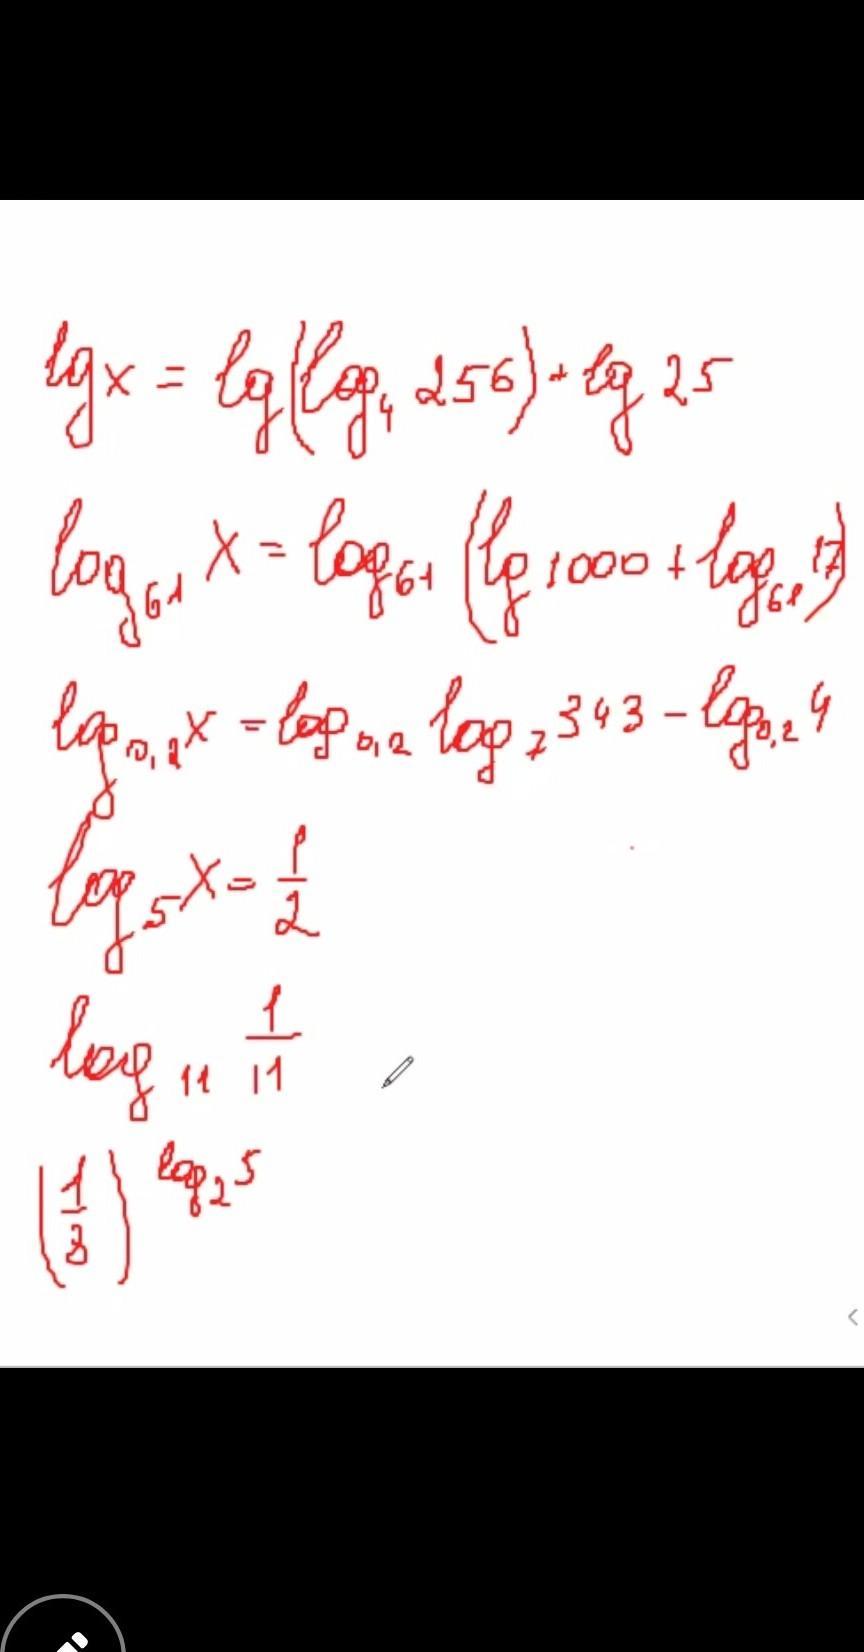 lg x = lg(log₄ 256) + lg 25
log₆₁ x = log₆₁ (lg 1000 + log₆₁ 17)
log₀,₂ x = log₀,₂ log₇ 343 - log₀,₂ 4
log₅ x = 1/2
log₁₁ 1/11
(1/8)^log₂ 5